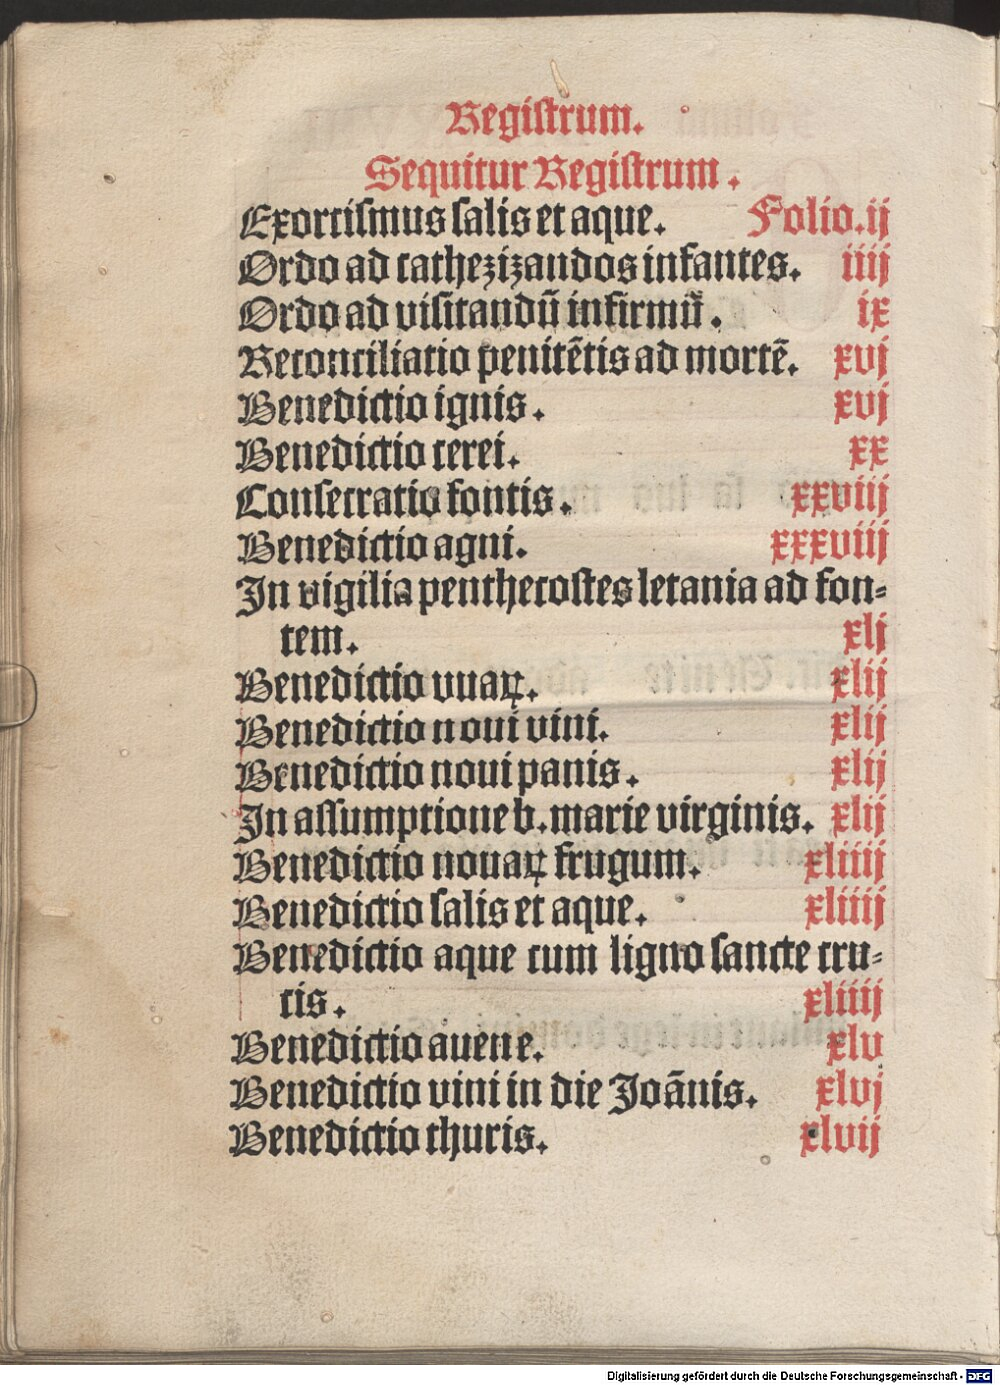 Regiſtrum.
Sequitur Regiſtrum.
Exorciſmus ſalis et aque. Folio.ij
Ordo ad cathezizandos infantes. iiij
Ordo ad viſitandū infirmū. ix
Reconciliatio penitētis ad mortē. xvj
Benedictio ignis. xvj
Benedictio cerei. xx
Conſecratio fontis. xxviij
Benedictio agni. xxxviij
In vigilia penthecoſtes letania ad fon⸗
tem. xlj
Benedictio vuaꝝ. xlij
Benedictio noui vini. xlij
Benedictio noui panis. xlij
In aſſumptione b. marie virginis. xlij
Benedictio nouaꝝ frugum. xliiij
Benedictio ſalis et aque. xliiij
Benedictio aque cum ligno ſancte cru⸗
cis. xliiij
Benedictio auene. xlv
Benedictio vini in die Joānis. xlvj
Benedictio thuris. xlvij
Digitalisierung gefördert durch die Deutsche Forschungsgemeinschaft - DFG